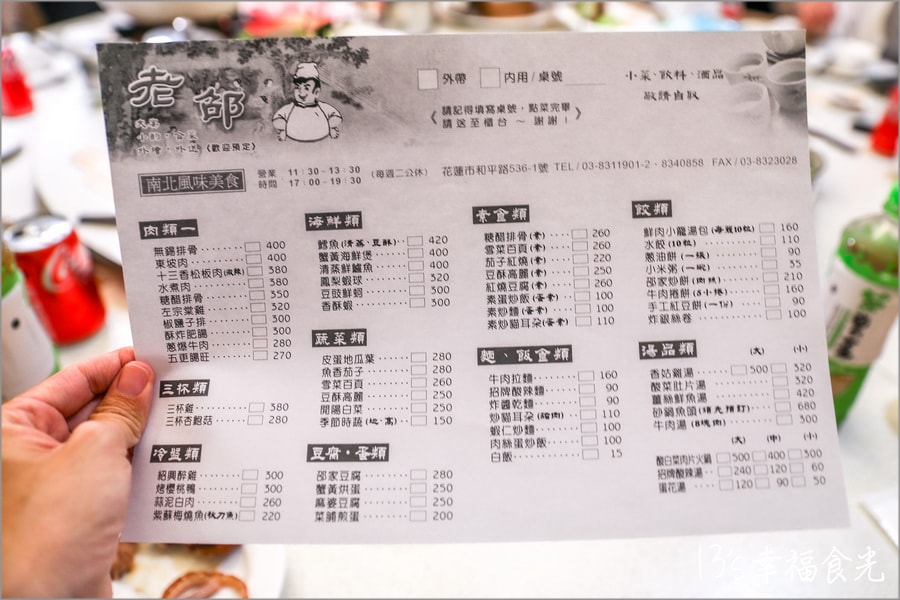 老邵
大宴
小酌・合菜
外燴・外送《歡迎預定》
外帶 內用/桌號
小菜、飲料、酒品
敬請自取
《請記得填寫桌號，點菜完畢
請送至櫃台 ～ 謝謝！》
南北風味美食
營業時間 11:30-13:30
17:00-19:30
(每週二公休)
花蓮市和平路536-1號 TEL/03-8311901-2、8340858 FAX/03-8323028
肉類一
無錫排骨 400
東坡肉 400
十三香松板肉 380
水煮肉 380
糖醋排骨 350
左宗棠雞 320
椒鹽子排 300
酥炸肥腸 300
蔥爆牛肉 280
五更腸旺 270
三杯類
三杯雞 380
三杯杏鮑菇 280
冷盤類
紹興醉雞 300
烤櫻桃鴨 300
蒜泥白肉 260
紫蘇梅燒魚(秋刀魚) 220
海鮮類
鱈魚(清蒸、豆酥) 420
蟹黃海鮮煲 400
清蒸鮮鱸魚 400
鳳梨蝦球 320
豆豉鮮蚵 300
香酥蝦 300
蔬菜類
皮蛋地瓜葉 280
魚香茄子 280
雪菜百頁 260
豆酥高麗 250
開陽白菜 250
季節時蔬 150
豆腐・蛋類
邵家豆腐 280
蟹黃烘蛋 250
麻婆豆腐 250
菜脯煎蛋 200
素食類
糖醋排骨(素) 260
雪菜百頁(素) 260
茄子紅燒(素) 220
豆酥高麗(素) 250
紅燒豆腐(素) 260
素蛋炒飯(蛋素) 100
素炒麵(蛋素) 100
素炒貓耳朵(蛋素) 110
麵、飯食類
牛肉拉麵 160
招牌酸辣麵 90
炸醬乾麵 90
炒貓耳朵(豬肉) 110
蝦仁炒麵 100
肉絲蛋炒飯 100
白飯 15
餃類
鮮肉小籠湯包(每籠10粒) 160
水餃(10粒) 110
蔥油餅(一張) 90
小米粥(一碗) 35
邵家炒餅(肉絲) 210
牛肉捲餅 160
手工紅豆餅(一份) 90
炸銀絲卷 100
湯品類 (大) (小)
香菇雞湯 500 320
酸菜肚片湯 320
薑絲鮮魚湯 420
砂鍋魚頭(請先預訂) 680
牛肉湯(8塊肉) 300
(大) (中) (小)
酸白菜肉片火鍋 500 400 300
招牌酸辣湯 240 120 60
蛋花湯 120 90 50
Coca-Cola
13's幸福食光